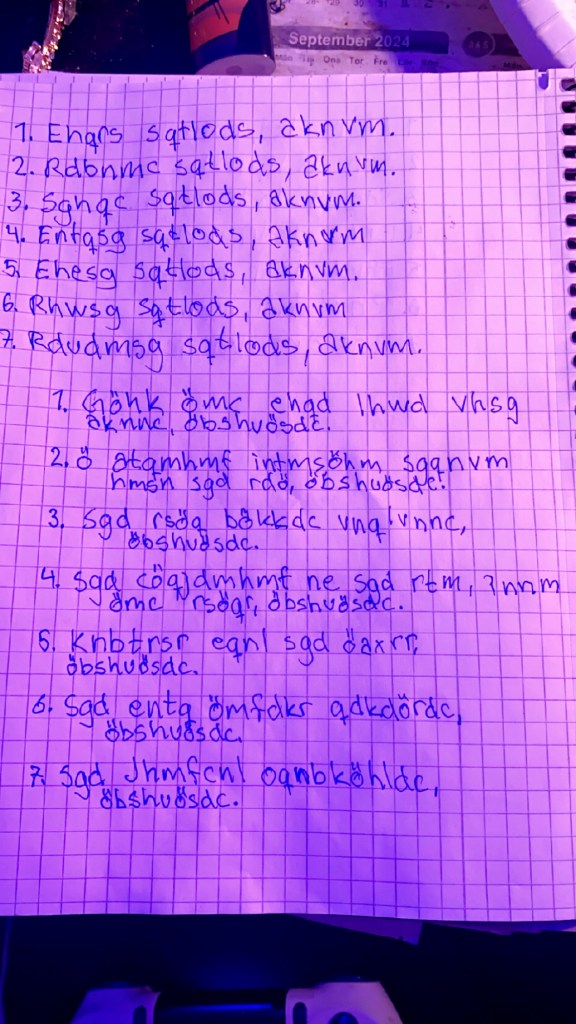 September 2024
Ons Tor Fre
1. Ehqrs sqtlods, aknvm.
2. Rdbnmc sqtlods, aknvm.
3. Sghqc sqtlods, aknvm.
4. Entqsg sqtlods, aknvm
5. Ehesg sqtlods, aknvm.
6. Rhwsg sqtlods, aknvm
7. Rdudmsg sqtlods, aknvm.
1. Göhk ömc ehqd lhwd vhsg
aknnc, öbshuösdc.
2. Ö atqmhmf lntmsöhm, sgqnvm
hmsn sgd rdö, öbshuösdc.
3. Sgd rsöq bökkdc vnqlvnnc,
öbshuösdc.
4. Sgd cöqjdmhmf ne sgd rtm, lnnm
ömc rsöqr, öbshuösdc.
5. Knbtrsr eqnl sgd öaxrr,
öbshuösdc.
6. Sgd entq ömfdkr qdkdördc,
öbshuösdc.
7. Sgd Jhmfcnl oqnbköhldc,
öbshuösdc.